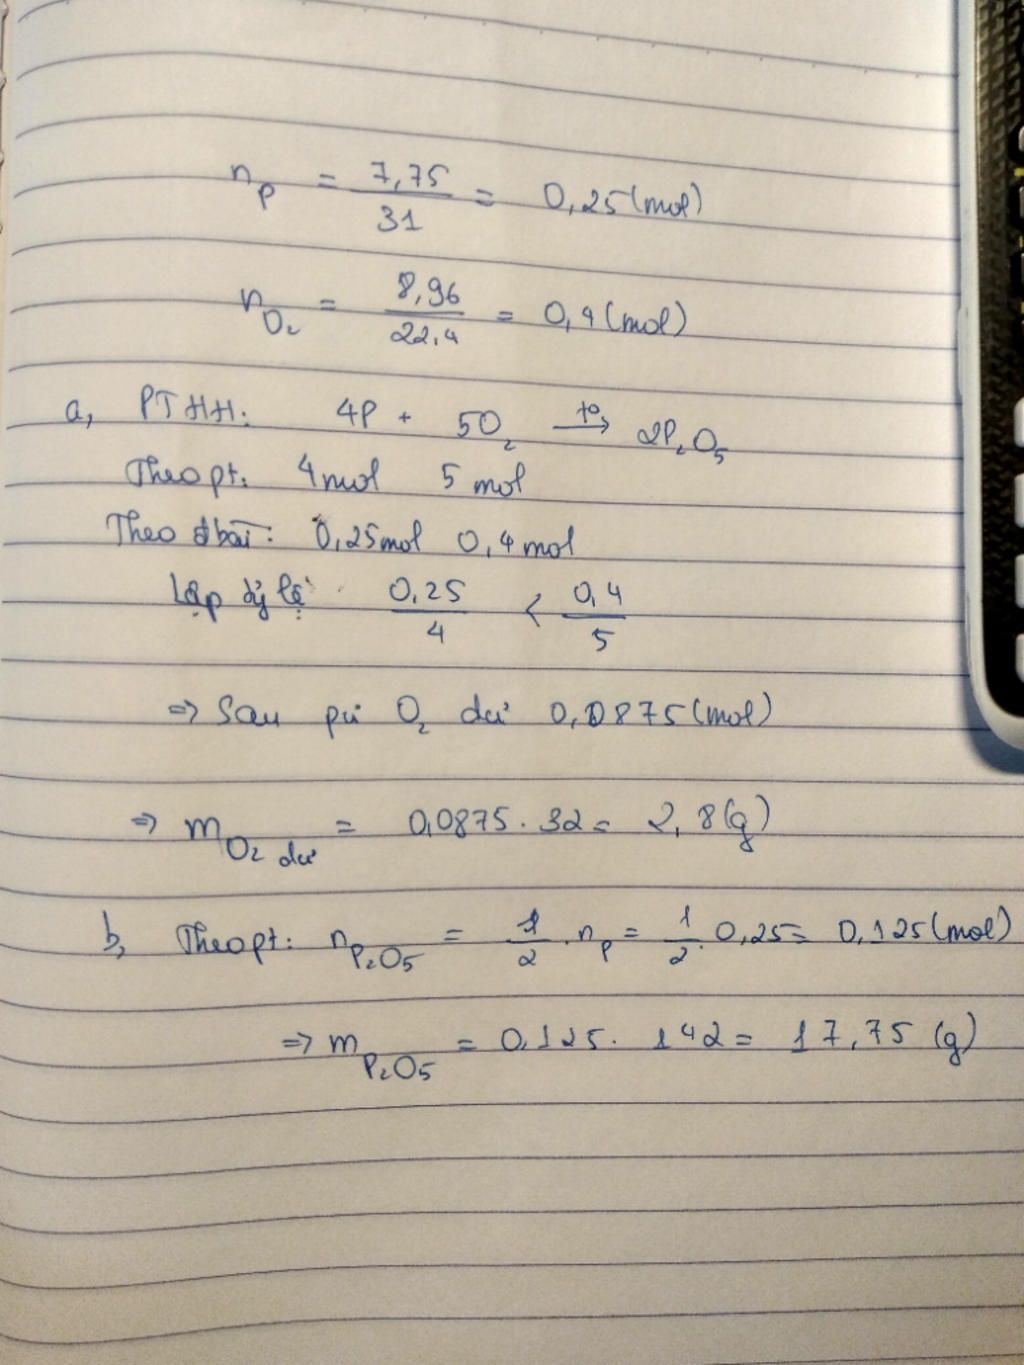 n_P = 7,75/31 = 0,25 (mol)
n_O₂ = 8,96/22,4 = 0,4 (mol)
a, PTHH: 4P + 5O₂ →(t°) 2P₂O₅
Theo pt: 4 mol 5 mol
Theo đbài: 0,25mol 0,4mol
Lập tỷ lệ 0,25/4 < 0,4/5
=> Sau pứ O₂ dư 0,0875 (mol)
=> m_O₂ dư = 0,0875 . 32 = 2,8 (g)
b, Theo pt: n_P₂O₅ = 1/2 . n_P = 1/2 . 0,25 = 0,125 (mol)
=> m_P₂O₅ = 0,125 . 142 = 17,75 (g)